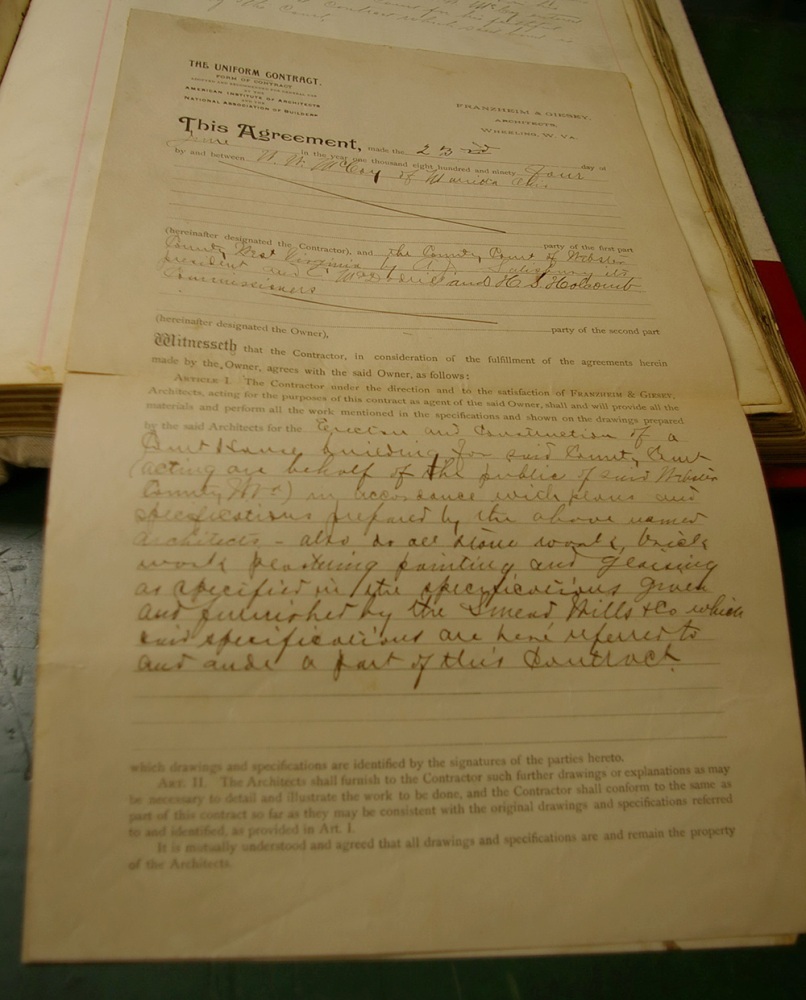 THE UNIFORM CONTRACT.
FORM OF CONTRACT
ADOPTED AND RECOMMENDED FOR GENERAL USE
BY THE
AMERICAN INSTITUTE OF ARCHITECTS
AND THE
NATIONAL ASSOCIATION OF BUILDERS
FRANZHEIM & GIESEY,
ARCHITECTS,
WHEELING, W. VA.
This Agreement, made the 23rd day of
June in the year one thousand eight hundred and ninety four
by and between W. W. McCoy of
party of the first part
(hereinafter designated the Contractor), and the County Court of Webster
County West Virginia by its
president and and H. S. Holcomb
Commissioners
(hereinafter designated the Owner), party of the second part
Witnesseth that the Contractor, in consideration of the fulfillment of the agreements herein
made by the Owner, agrees with the said Owner, as follows:
ARTICLE I. The Contractor under the direction and to the satisfaction of FRANZHEIM & GIESEY,
Architects, acting for the purposes of this contract as agent of the said Owner, shall and will provide all the
materials and perform all the work mentioned in the specifications and shown on the drawings prepared
by the said Architects for the Erection and Construction of a
Court House building for said County Court
(acting on behalf of the public of said Webster
County W Va) in accordance with plans and
specifications prepared by the above named
architects - also do all stone work, brick
work plastering painting and glazing
as specified in the specifications given
and furnished by the Smead Wills & Co which
said specifications are here referred to
and made a part of this Contract.
which drawings and specifications are identified by the signatures of the parties hereto.
ART. II. The Architects shall furnish to the Contractor such further drawings or explanations as may
be necessary to detail and illustrate the work to be done, and the Contractor shall conform to the same as
part of this contract so far as they may be consistent with the original drawings and specifications referred
to and identified, as provided in Art. I.
It is mutually understood and agreed that all drawings and specifications are and remain the property
of the Architects.